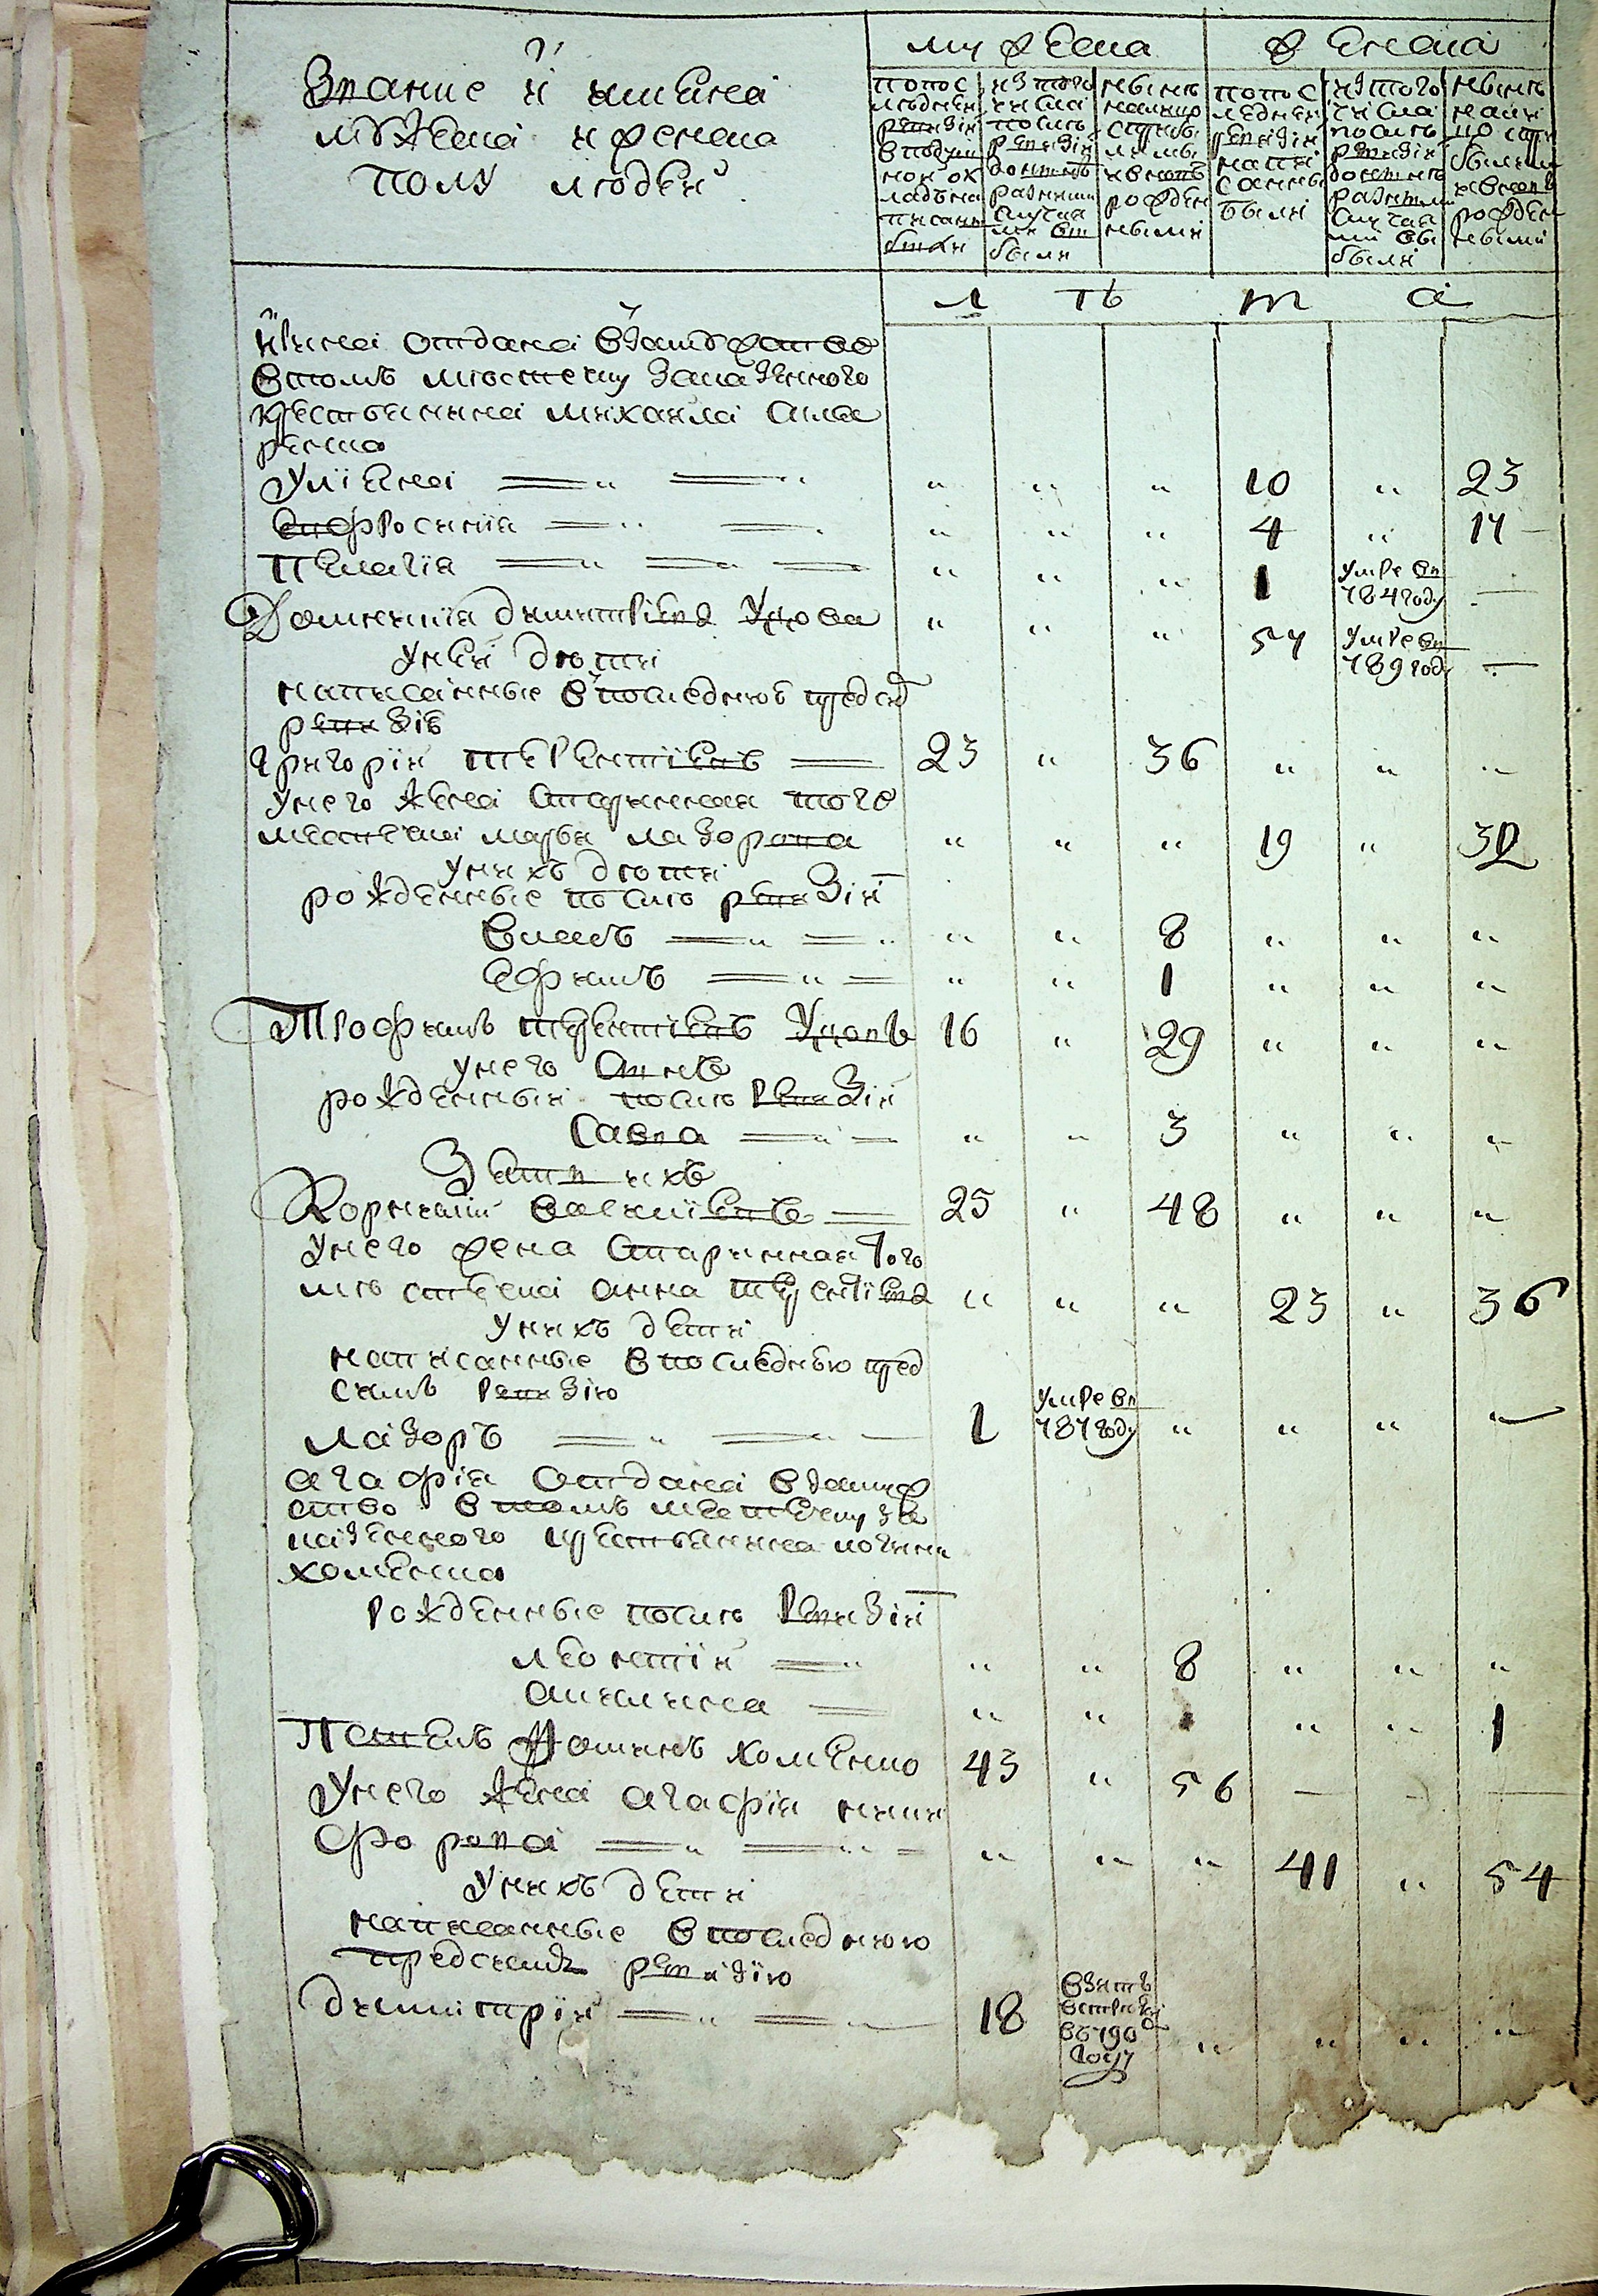 Звание и имена
мужеска и женска
полу людей
мужеска
женска
по пос
ледней
ревизии
в подуш
ной ок
лад на
писаны
были
из того
числа
после
ревизии
разными
случая
ми вы
были
ныне
налицо
и вновь
рожден
ные
по пос
ледней
ревизии
были
из того
числа
после
ревизии
разными
случая
ми вы
были
ныне
рожден
ные
л ѣ т а
отдана в замужство
в томъ местечку за казенного
крестьянина михаила
Улияна " " " 10 " 23
Ефросиния " " " 4 " 17
Пелагия " " " 1 умре въ 784 году
Домникия димитриева Удова " " " 57 умре въ 789 году
у ней дѣти
написанные в последнюю пред сим
ревизию
григорий терентиевъ 23 " 36 " " "
у него жена старинная того
местечка марья лазорова " " " 19 " 32
у них дѣти
рожденные после ревизии
Емелъ " " 8 " " "
Ефимъ " " 1 " " "
Трофимъ терентиевъ 16 " 29 " " "
у него сынъ
рожденный после ревизии
Савва " " 3 " " "
Зять ихъ
Корнилий василиевъ 25 " 48 " " "
у него жена старинная того
местечка анна терентиева " " " 23 " 36
у нихъ дети
написанные в последнюю пред
симъ ревизию
лазоръ 1 умре въ 787 году " " " "
агафия отдана в замуж
ство в томъ местечку за
казенного крестьянина логина
хоменка
рожденные после ревизии
леонтий " " 8 " " "
акилина " " " " 1
Павелъ фоминъ хоменко 43 " 56
У него жена агафия ники
форова " " " 41 " 54
У нихъ дети
написанные в последнюю
предсимъ ревизию
димитрий 18 взятъ в рекруты въ 790 году " " " "